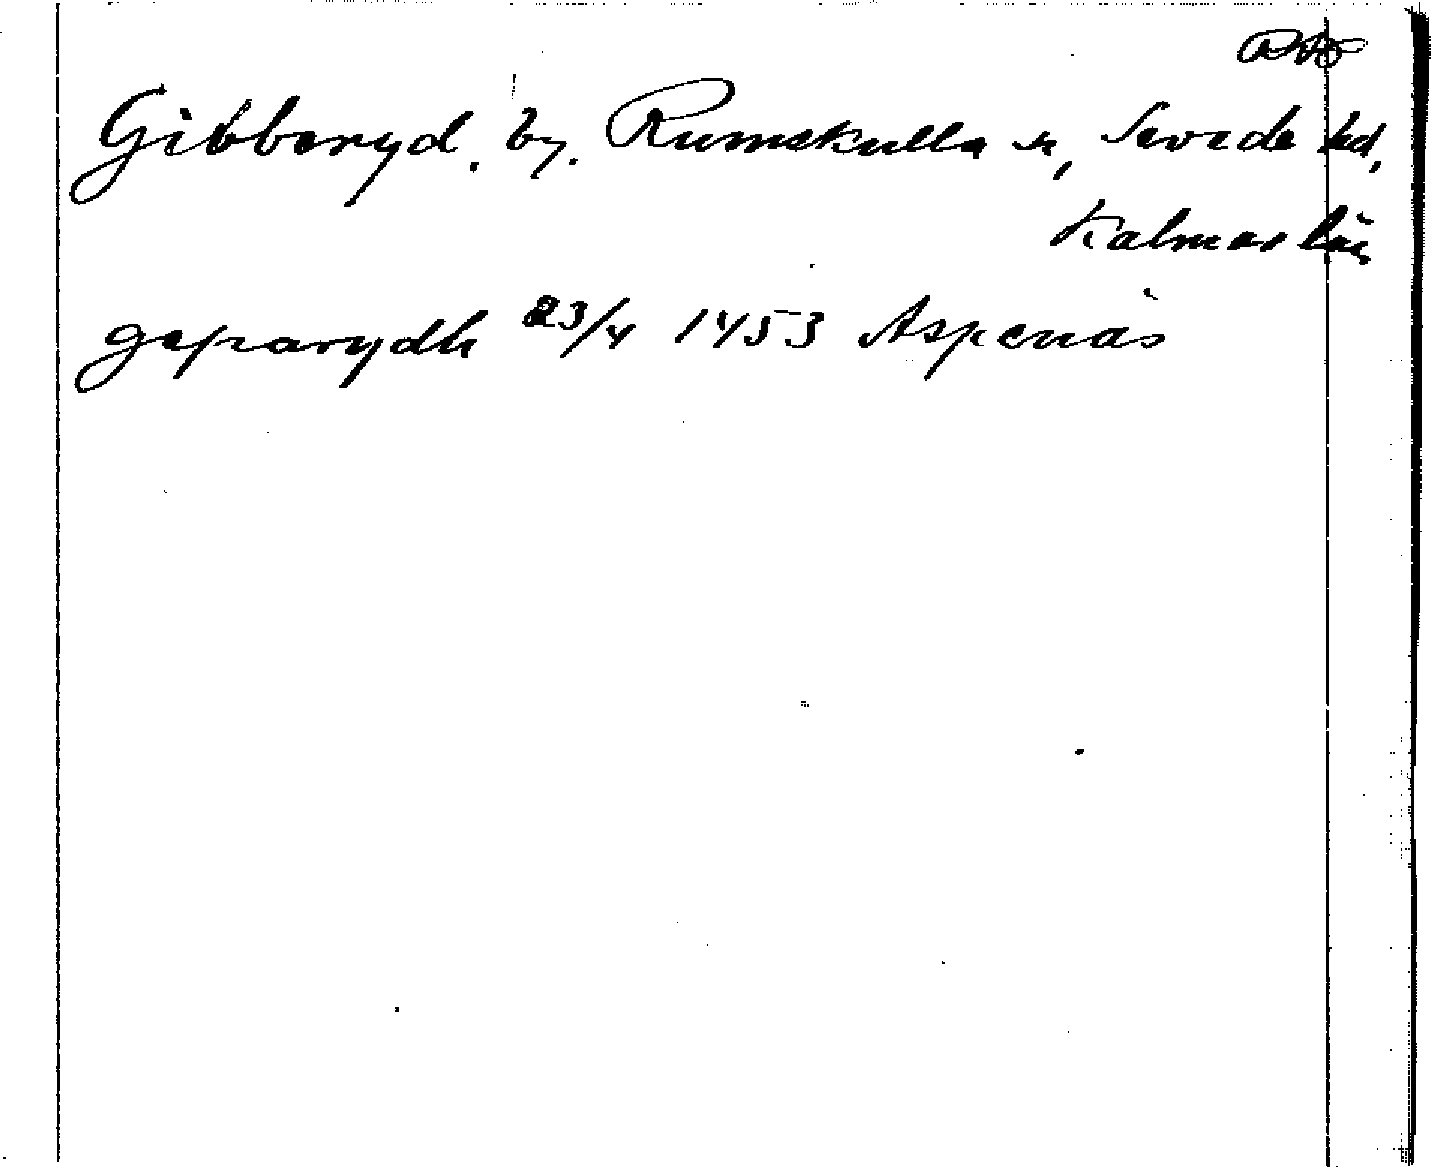 Gibberyd. by. Rumskulla sn, Sevede hd,
Kalmar län
geparydh 23/4 1453 Aspenäs